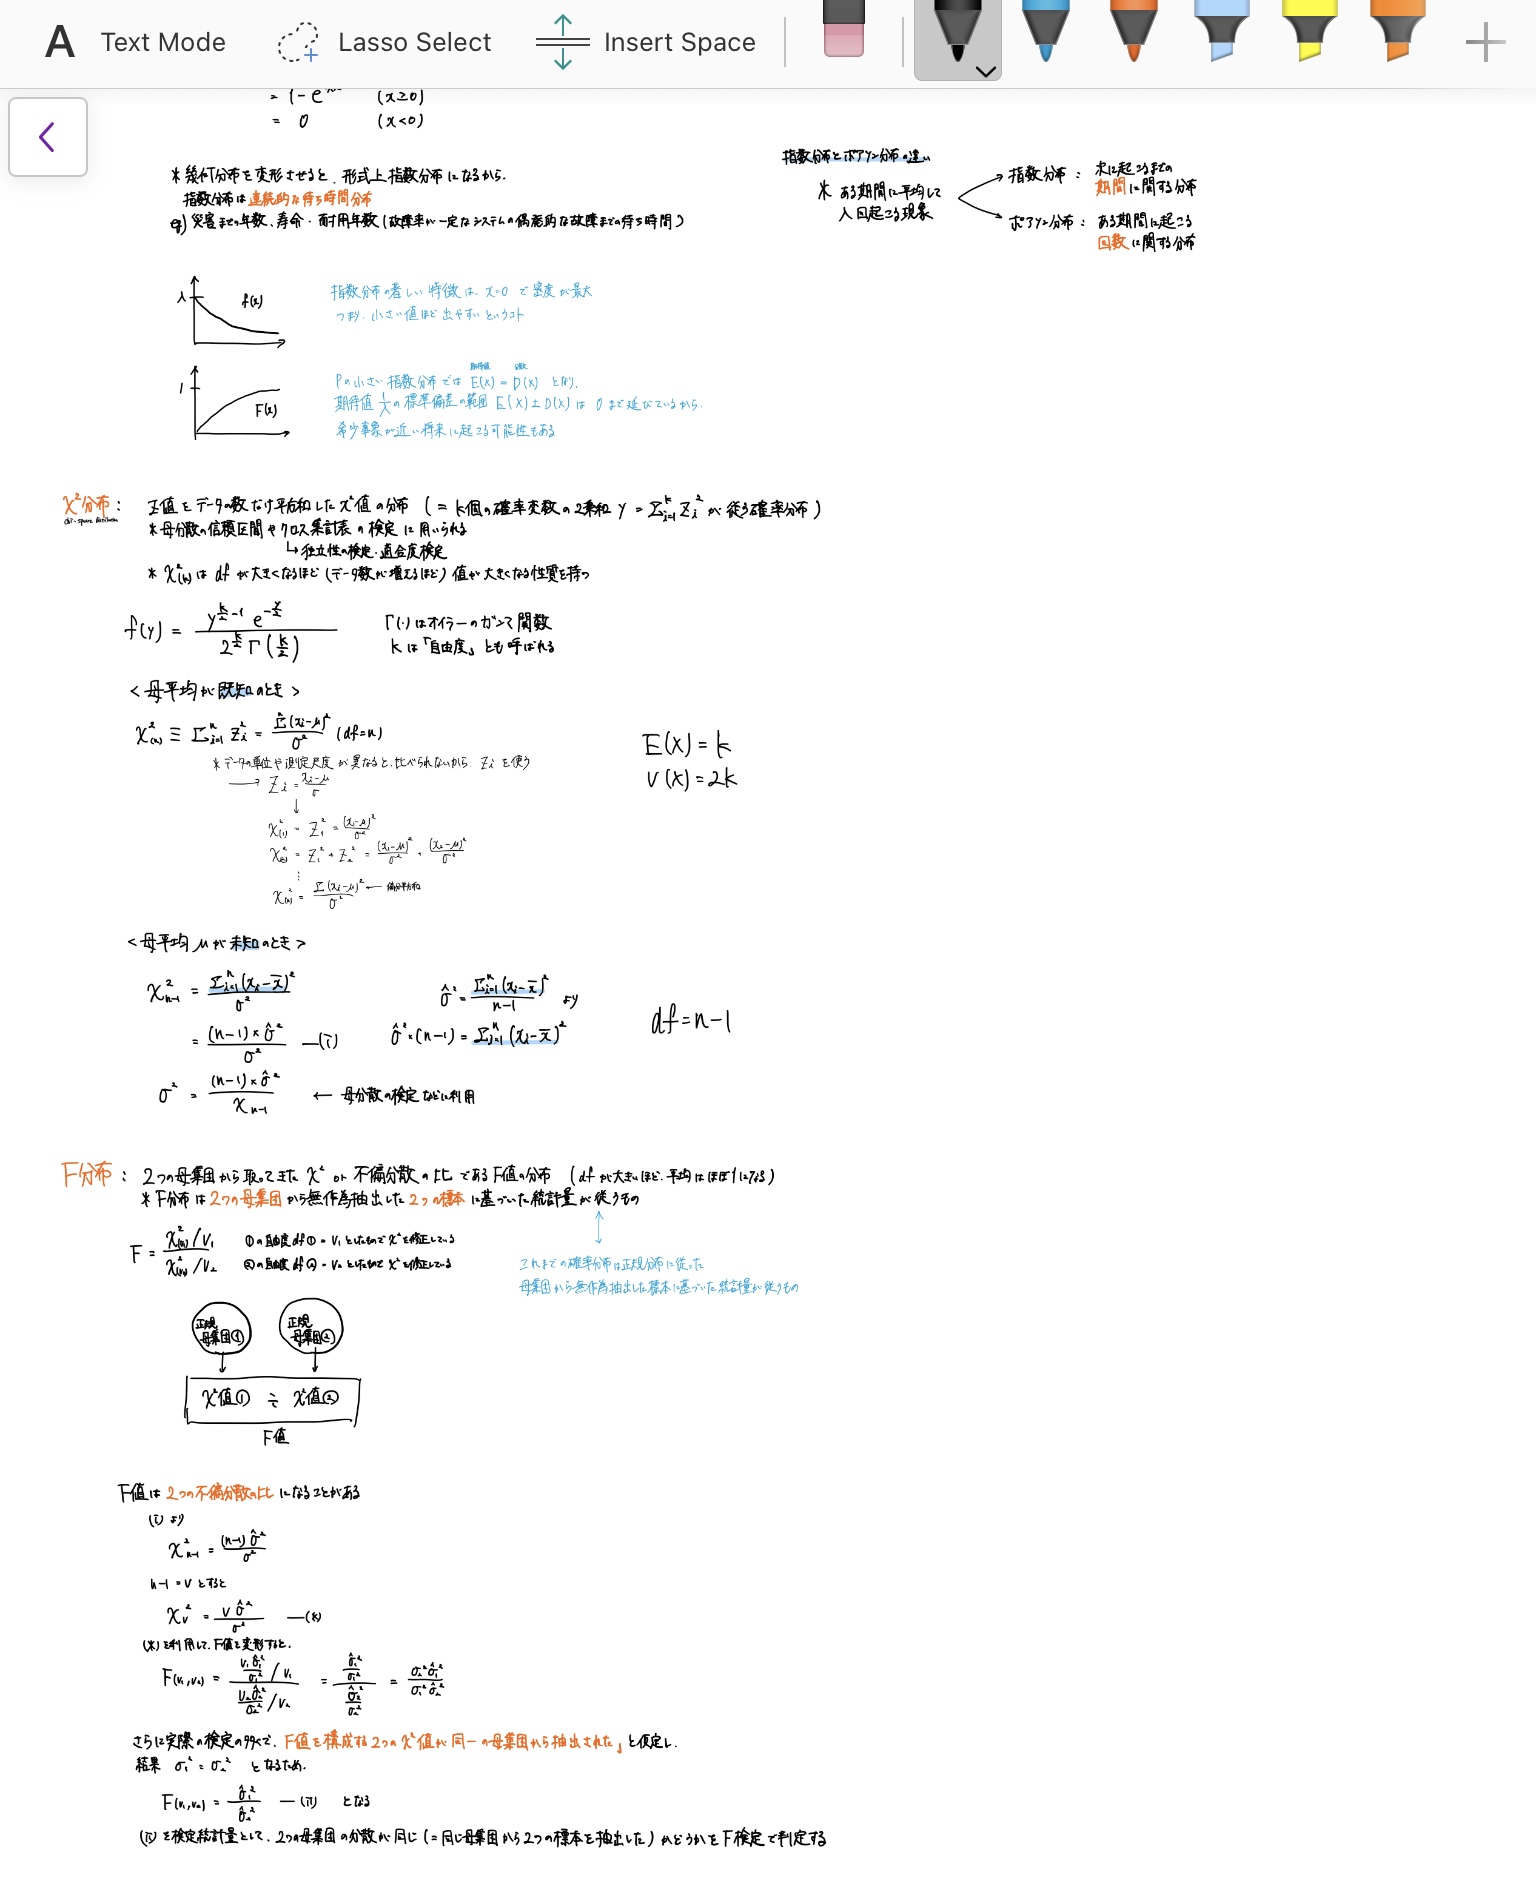 A Text Mode Lasso Select Insert Space
= 1 - e (x≥0)
= 0 (x<0)
指数分布とポアソン分布の違い
※ ある期間に平均して
λ回起こる現象
指数分布: 次に起こるまでの
期間に関する分布
ポアソン分布: ある期間に起こる
回数に関する分布
※幾何分布を変形させると、形式上指数分布になるから、
指数分布は連続的な待ち時間分布
eg) 災害までの年数、寿命・耐用年数(故障率が一定なシステムの偶発的な故障までの待ち時間)
λ f(x)
指数分布の著しい特徴は、x=0 で密度が最大
つまり、小さい値ほど出やすいというコト
1 F(x)
Pの小さい指数分布では E(x) = D(x) となり、
期待値 1/λ の標準偏差の範囲 E(x)±D(x) は 0まで延びているから、
希少事象が近い将来に起こる可能性もある
χ²分布: Z値をデータの数だけ平方和したχ²値の分布 (= k個の確率変数の2乗和 Y = Σᵢ₌₁ᵏ Zᵢ² が従う確率分布)
※母分散の信頼区間やクロス集計表の検定に用いられる
↳独立性の検定・適合度検定
※ χ²(k) は df が大きくなるほど(データ数が増えるほど)値が大きくなる性質を持つ
f(y) = y^(k/2 -1) e^(-y/2) / 2^(k/2) Γ(k/2)
Γ(·)はオイラーのガンマ関数
kは「自由度」とも呼ばれる
<母平均が既知のとき>
χ²(n) ≡ Σᵢ₌₁ⁿ Zᵢ² = Σ(xᵢ-μ)² / σ² (df=n)
E(X) = k
V(X) = 2k
※データの単位や測定尺度が異なると、比べられないから、Zᵢを使う
→ Zᵢ = (xᵢ-μ) / σ
↓
χ²(1) = Z₁² = (x₁-μ)² / σ²
χ²(2) = Z₁² + Z₂² = (x₁-μ)² / σ² + (x₂-μ)² / σ²
⋮
χ²(n) = Σ(xᵢ-μ)² / σ² ← 偏差平方和
<母平均μが未知のとき>
χ²n-1 = Σᵢ₌₁ⁿ(xᵢ-x̄)² / σ²
σ̂² = Σᵢ₌₁ⁿ(xᵢ-x̄)² / n-1 より
= (n-1)×σ̂² / σ² —(i)
σ̂²×(n-1) = Σᵢ₌₁ⁿ(xᵢ-x̄)²
df = n-1
σ² = (n-1)×σ̂² / χn-1 ← 母分散の検定などに利用
F分布: 2つの母集団から取ってきたχ² or 不偏分散の比であるF値の分布 (dfが大きいほど、平均はほぼ1になる)
※F分布は2つの母集団から無作為抽出した2つの標本に基づいた統計量が従うもの
F = χ²(v₁)/v₁ / χ²(v₂)/v₂
①の自由度df①=v₁としたものでχ²を修正している
②の自由度df②=v₂としたものでχ²を修正している
これまでの確率分布は正規分布に従った
母集団から無作為抽出した標本に基づいた統計量が従うもの
正規
母集団①
正規
母集団②
χ²値① ÷ χ²値②
F値
F値は2つの不偏分散の比になることがある
(i) より
χ²n-1 = (n-1)σ̂² / σ²
n-1 = v とすると
χv² = vσ̂² / σ² —(※)
(※)を利用して、F値を変形すると、
F(v₁,v₂) = (v₁σ̂₁²/σ₁² / v₁) / (v₂σ̂₂²/σ₂² / v₂) = (σ̂₁²/σ₁²) / (σ̂₂²/σ₂²) = σ₂²σ̂₁² / σ₁²σ̂₂²
さらに実際の検定の多くで、F値を構成する2つのχ²値が同一の母集団から抽出された」と仮定し、
結果 σ₁² = σ₂² となるため、
F(v₁,v₂) = σ̂₁² / σ̂₂² —(ii) となる
(ii)を検定統計量として、2つの母集団の分散が同じ(=同じ母集団から2つの標本を抽出した)かどうかをF検定で判定する